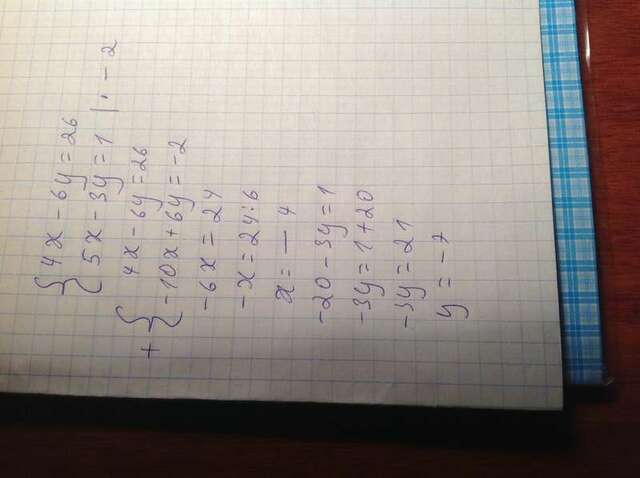 { 4x - 6y = 26
5x - 3y = 1 | · - 2
+ { 4x - 6y = 26
-10x + 6y = -2
-6x = 24
-x = 24:6
x = - 4
-20 - 3y = 1
-3y = 1 + 20
-3y = 21
y = -7